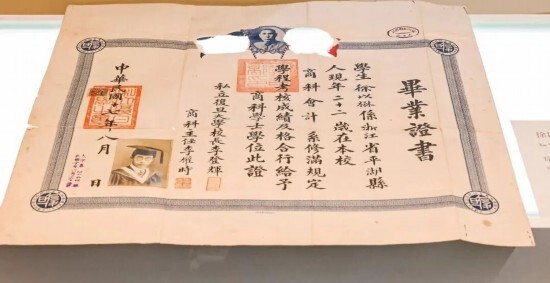 畢業證書
學生徐以係浙江省平湖縣
人現年二十二歲在本校
商科會計系修滿規定
學程考核成績及格合行給予
商科學士學位此證
私立復旦大學校長李登輝
商科主任李權時
中華民國年八月日